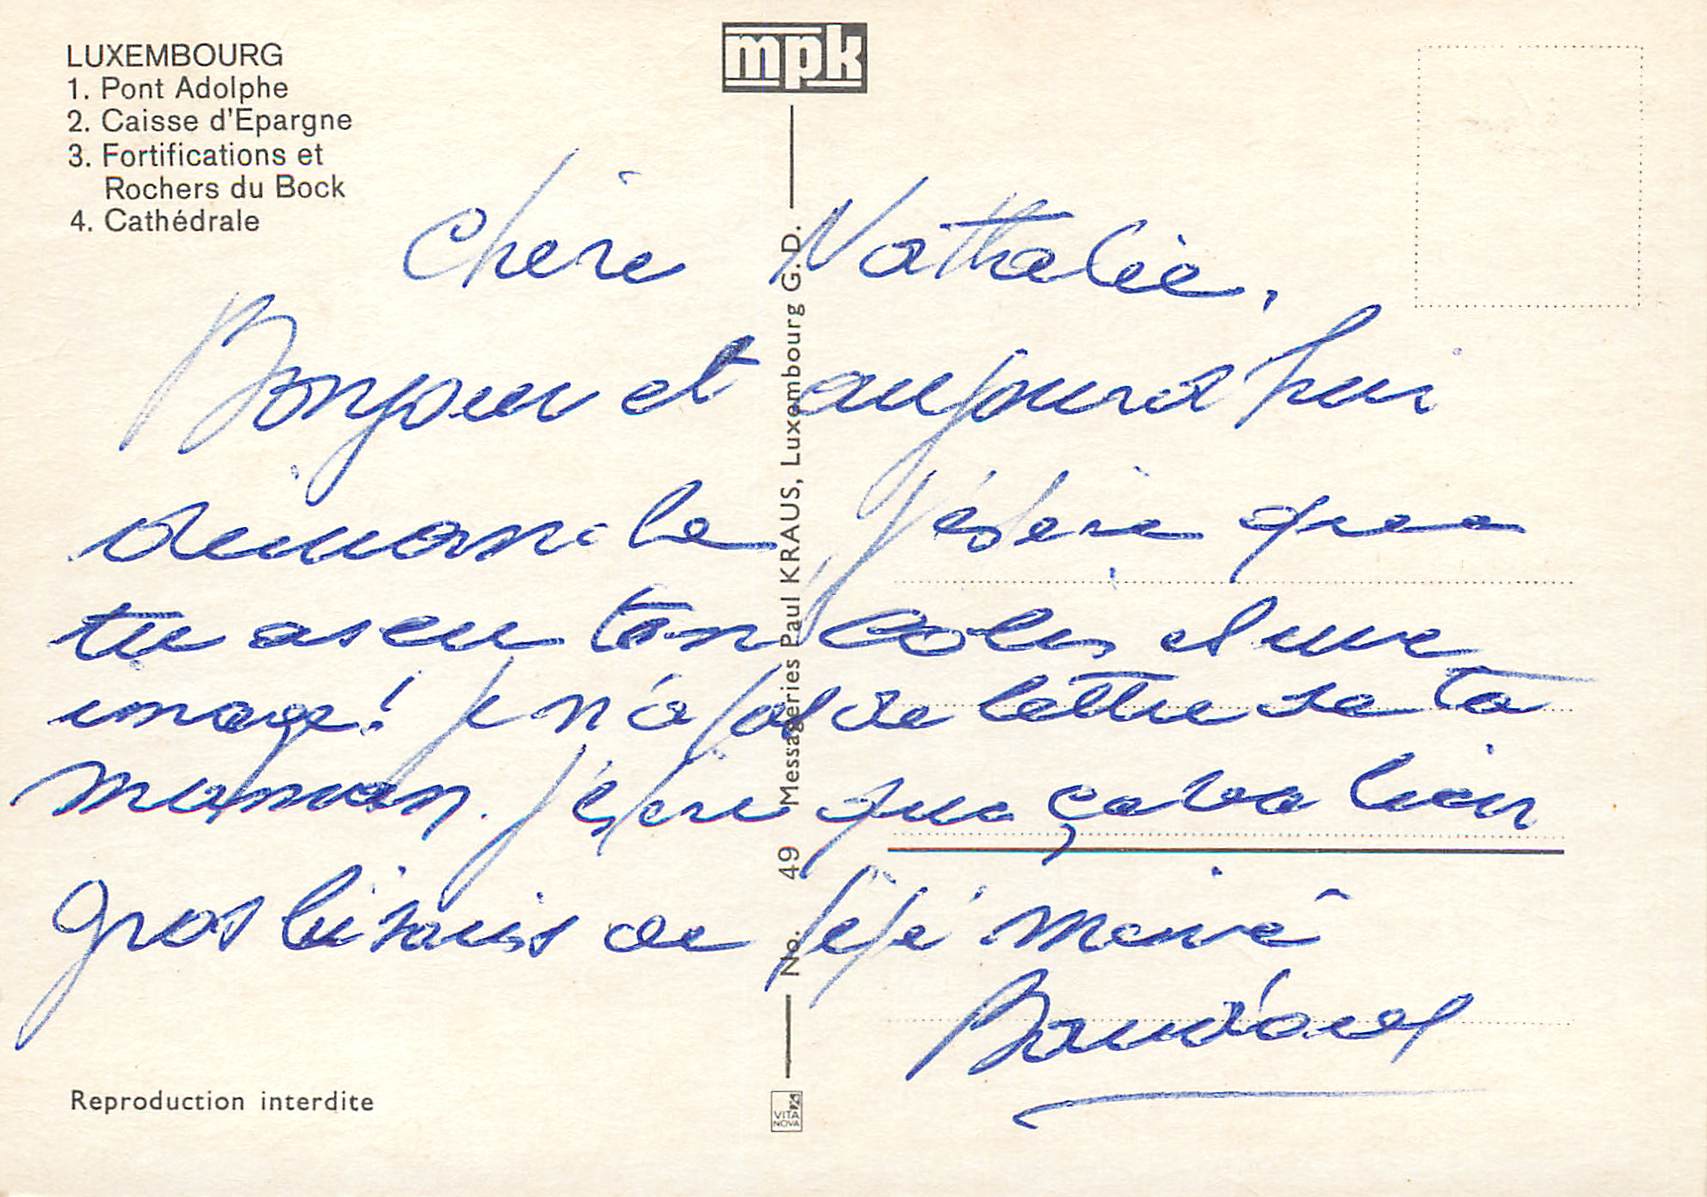 LUXEMBOURG
1. Pont Adolphe
2. Caisse d'Epargne
3. Fortifications et
Rochers du Bock
4. Cathédrale
mpk
Chère Nathalie,
Bonjour et aujourd hui
dimanche j'éspère que
tu as eu ton colis et une
image! Je n'a pas de lettre de ta
maman. J'éspère que ça va bien
gros bisouis de pépé mémé
No. 49 Messageries Paul KRAUS, Luxembourg G.-D.
Reproduction interdite
VITA
NOVA